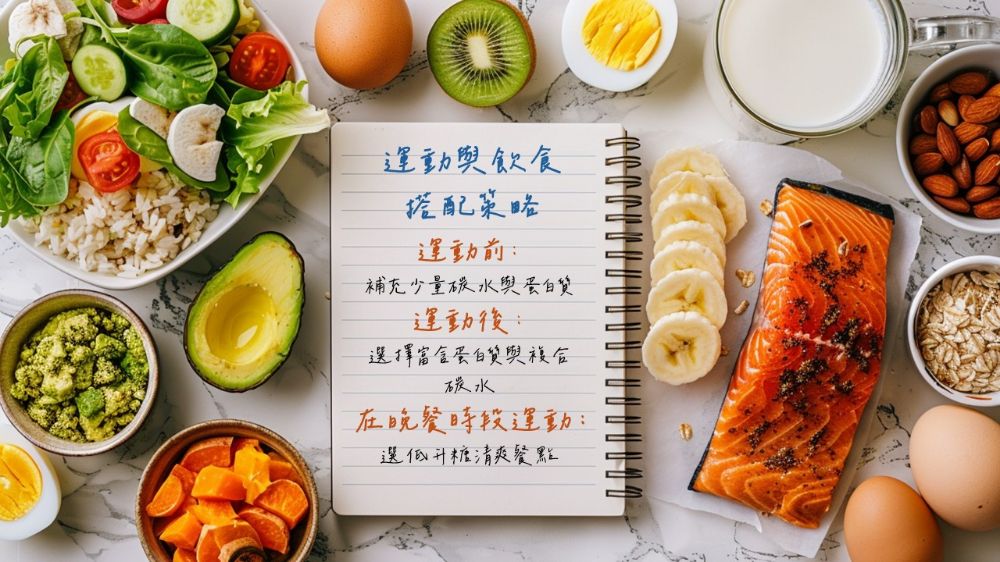 運動與飲食
搭配策略
運動前：
補充少量碳水與蛋白質
運動後：
選擇富含蛋白質與複合
碳水
在晚餐時段運動：
選低升糖清爽餐點